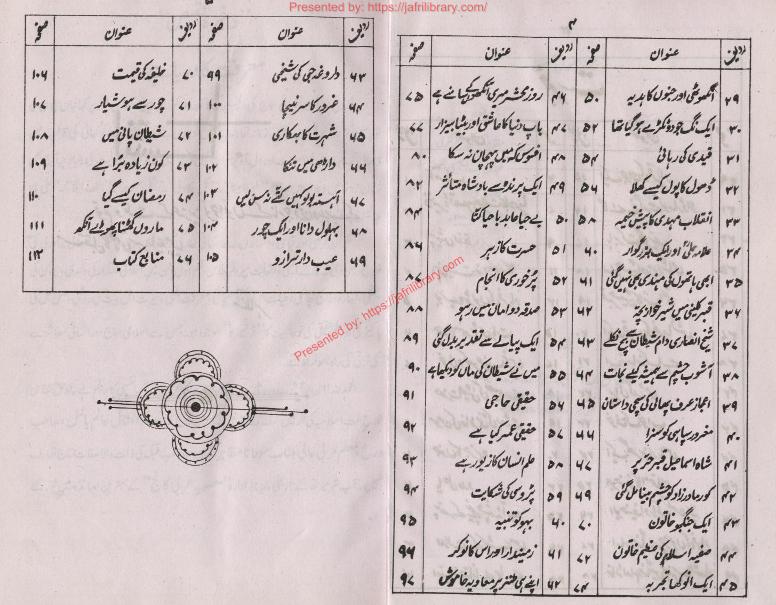 Presented by: https://jafrilibrary.com/
۴
ردیف عنوان صفحہ ردیف عنوان صفحہ
۲۹ انگھوٹھی اور جنوں کا ہدیہ ۵۰ ۴۶ روز محشر میری آنکھوں کے سامنے ہے ۷۵
۳۰ ایک نگ جو دو ٹکڑے ہو گیا تھا ۵۲ ۴۷ باپ دنیا کا عاشق اور بیٹا بیزار ۷۷
۳۱ قیدی کی رہائی ۵۴ ۴۸ افسوس کہ میں پہچان نہ سکا ۸۰
۳۲ ڈھول کا پول کیسے کھلا ۵۶ ۴۹ ایک پرندہ سے بادشاہ متأثر ۸۲
۳۳ انقلاب مہدی کا پیش خیمہ ۵۸ ۵۰ بے حیا عابد با حیا کتا ۸۴
۳۴ علامہ حلی اور ایک بزرگوار ۶۰ ۵۱ حسرت کا زہر ۸۶
۳۵ ابھی ہاتھوں کی مہندی بھی نہیں گئی ۶۱ ۵۲ پرخوری کا انجام ۸۷
۳۶ قبر کلینی میں شیر خوار بچہ ۶۲ ۵۳ صدقہ دو امان میں رہو ۸۸
۳۷ شیخ انصاری دام شیطان سے بچ نکلے ۶۳ ۵۴ ایک پیالے سے تقدیر بدل گئی ۸۹
۳۸ آشوب چشم سے ہمیشہ کیلئے نجات ۶۴ ۵۵ میں نے شیطان کی ماں کو دیکھا ہے ۹۰
۳۹ اعجاز عرف بھائی کی سچی داستان ۶۵ ۵۶ حقیقی حاجی ۹۱
۴۰ مغرور سپاہی کو سزا ۶۶ ۵۷ حقیقی عمر کیا ہے ۹۲
۴۱ شاہ اسماعیل قبر حر پر ۶۷ ۵۸ علم انسان کا زیور ہے ۹۳
۴۲ کور مادر زاد کو چشم بینا مل گئی ۶۹ ۵۹ پڑوسی کی شکایت ۹۴
۴۳ ایک جنگجو خاتون ۷۰ ۶۰ بہو کو تنبیہ ۹۵
۴۴ صفیہ اسلام کی عظیم خاتون ۷۲ ۶۱ زمیندار اور اس کا نوکر ۹۶
۴۵ ایک انوکھا تجربہ ۷۴ ۶۲ اپنے ہی طنز پر معاویہ خاموش ۹۷
ردیف عنوان صفحہ ردیف عنوان صفحہ
۶۳ داروغہ جی کی شیخی ۹۹ ۷۰ خلیفہ کی قیمت ۱۰۶
۶۴ غرور کا سر نیچا ۱۰۰ ۷۱ چور سے ہوشیار ۱۰۷
۶۵ شہرت کا بھکاری ۱۰۱ ۷۲ شیطان پانی میں ۱۰۸
۶۶ داڑھی میں تنکا ۱۰۲ ۷۳ کون زیادہ بڑا ہے ۱۰۹
۶۷ آہستہ بولو کہیں کتے نہ سن لیں ۱۰۳ ۷۴ رمضان کیسے گیا ۱۱۰
۶۸ بہلول دانا اور ایک چور ۱۰۴ ۷۵ ماروں گھٹنا پھوٹے آنکھ ۱۱۱
۶۹ عیب دار ترازو ۱۰۵ ۷۶ منابع کتاب ۱۱۳
Presented by: https://jafrilibrary.com/